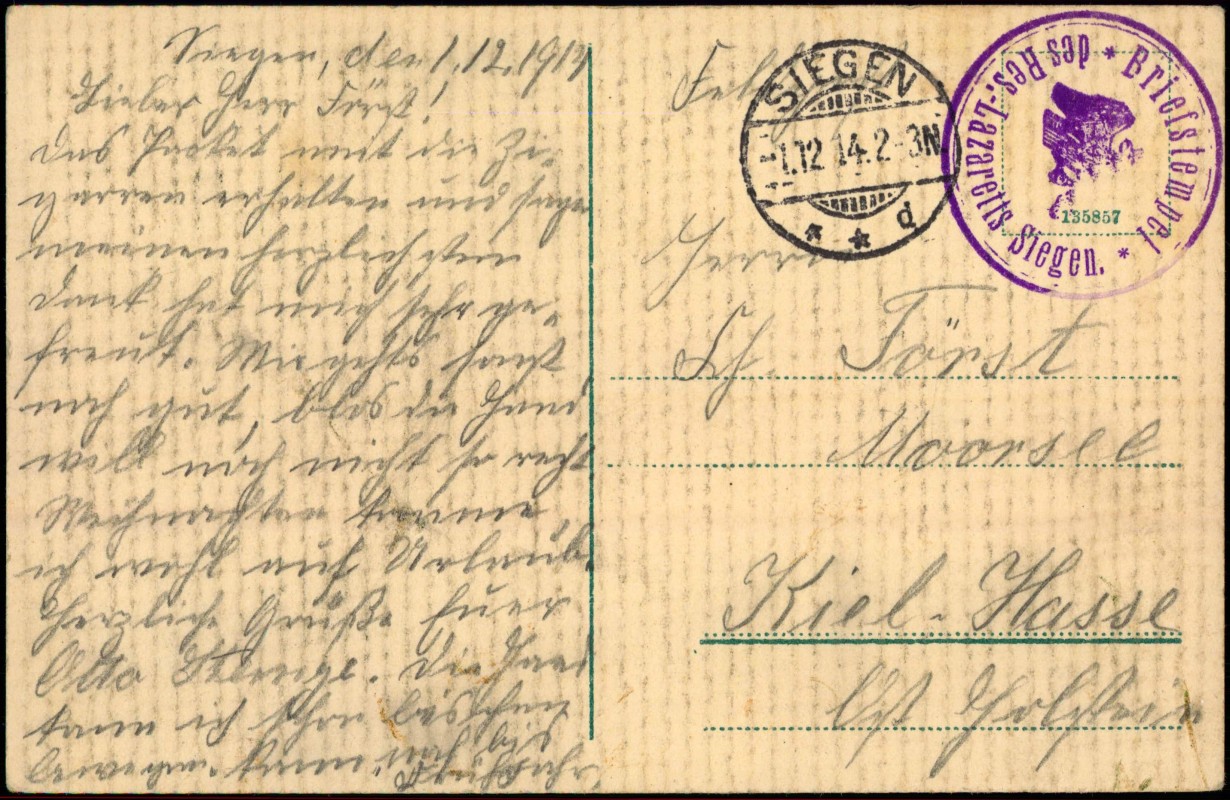 Siegen, den 1.12.1914
Lieber Herr Först!
Das Packet mit die Zi-
garren erhalten und sage
meinen herzlichsten
Dank hat mich sehr ge-
freut. Mir gehts sonst
noch gut, blos die Hand
will noch nicht so recht
Weihnachten komme
ich wohl auf Urlaub.
Herzliche Grüße Euer
Otto. Die Hand
kann ich schon bischen
bewegen. kann noch bis
Frühjahr
SIEGEN
-1.12.14.2-3N.
* * d
Briefstempel * des Res.-Lazaretts Siegen. *
135857
Herrn
Först
Moorsee
Kiel-Hasse
Ost Holstein